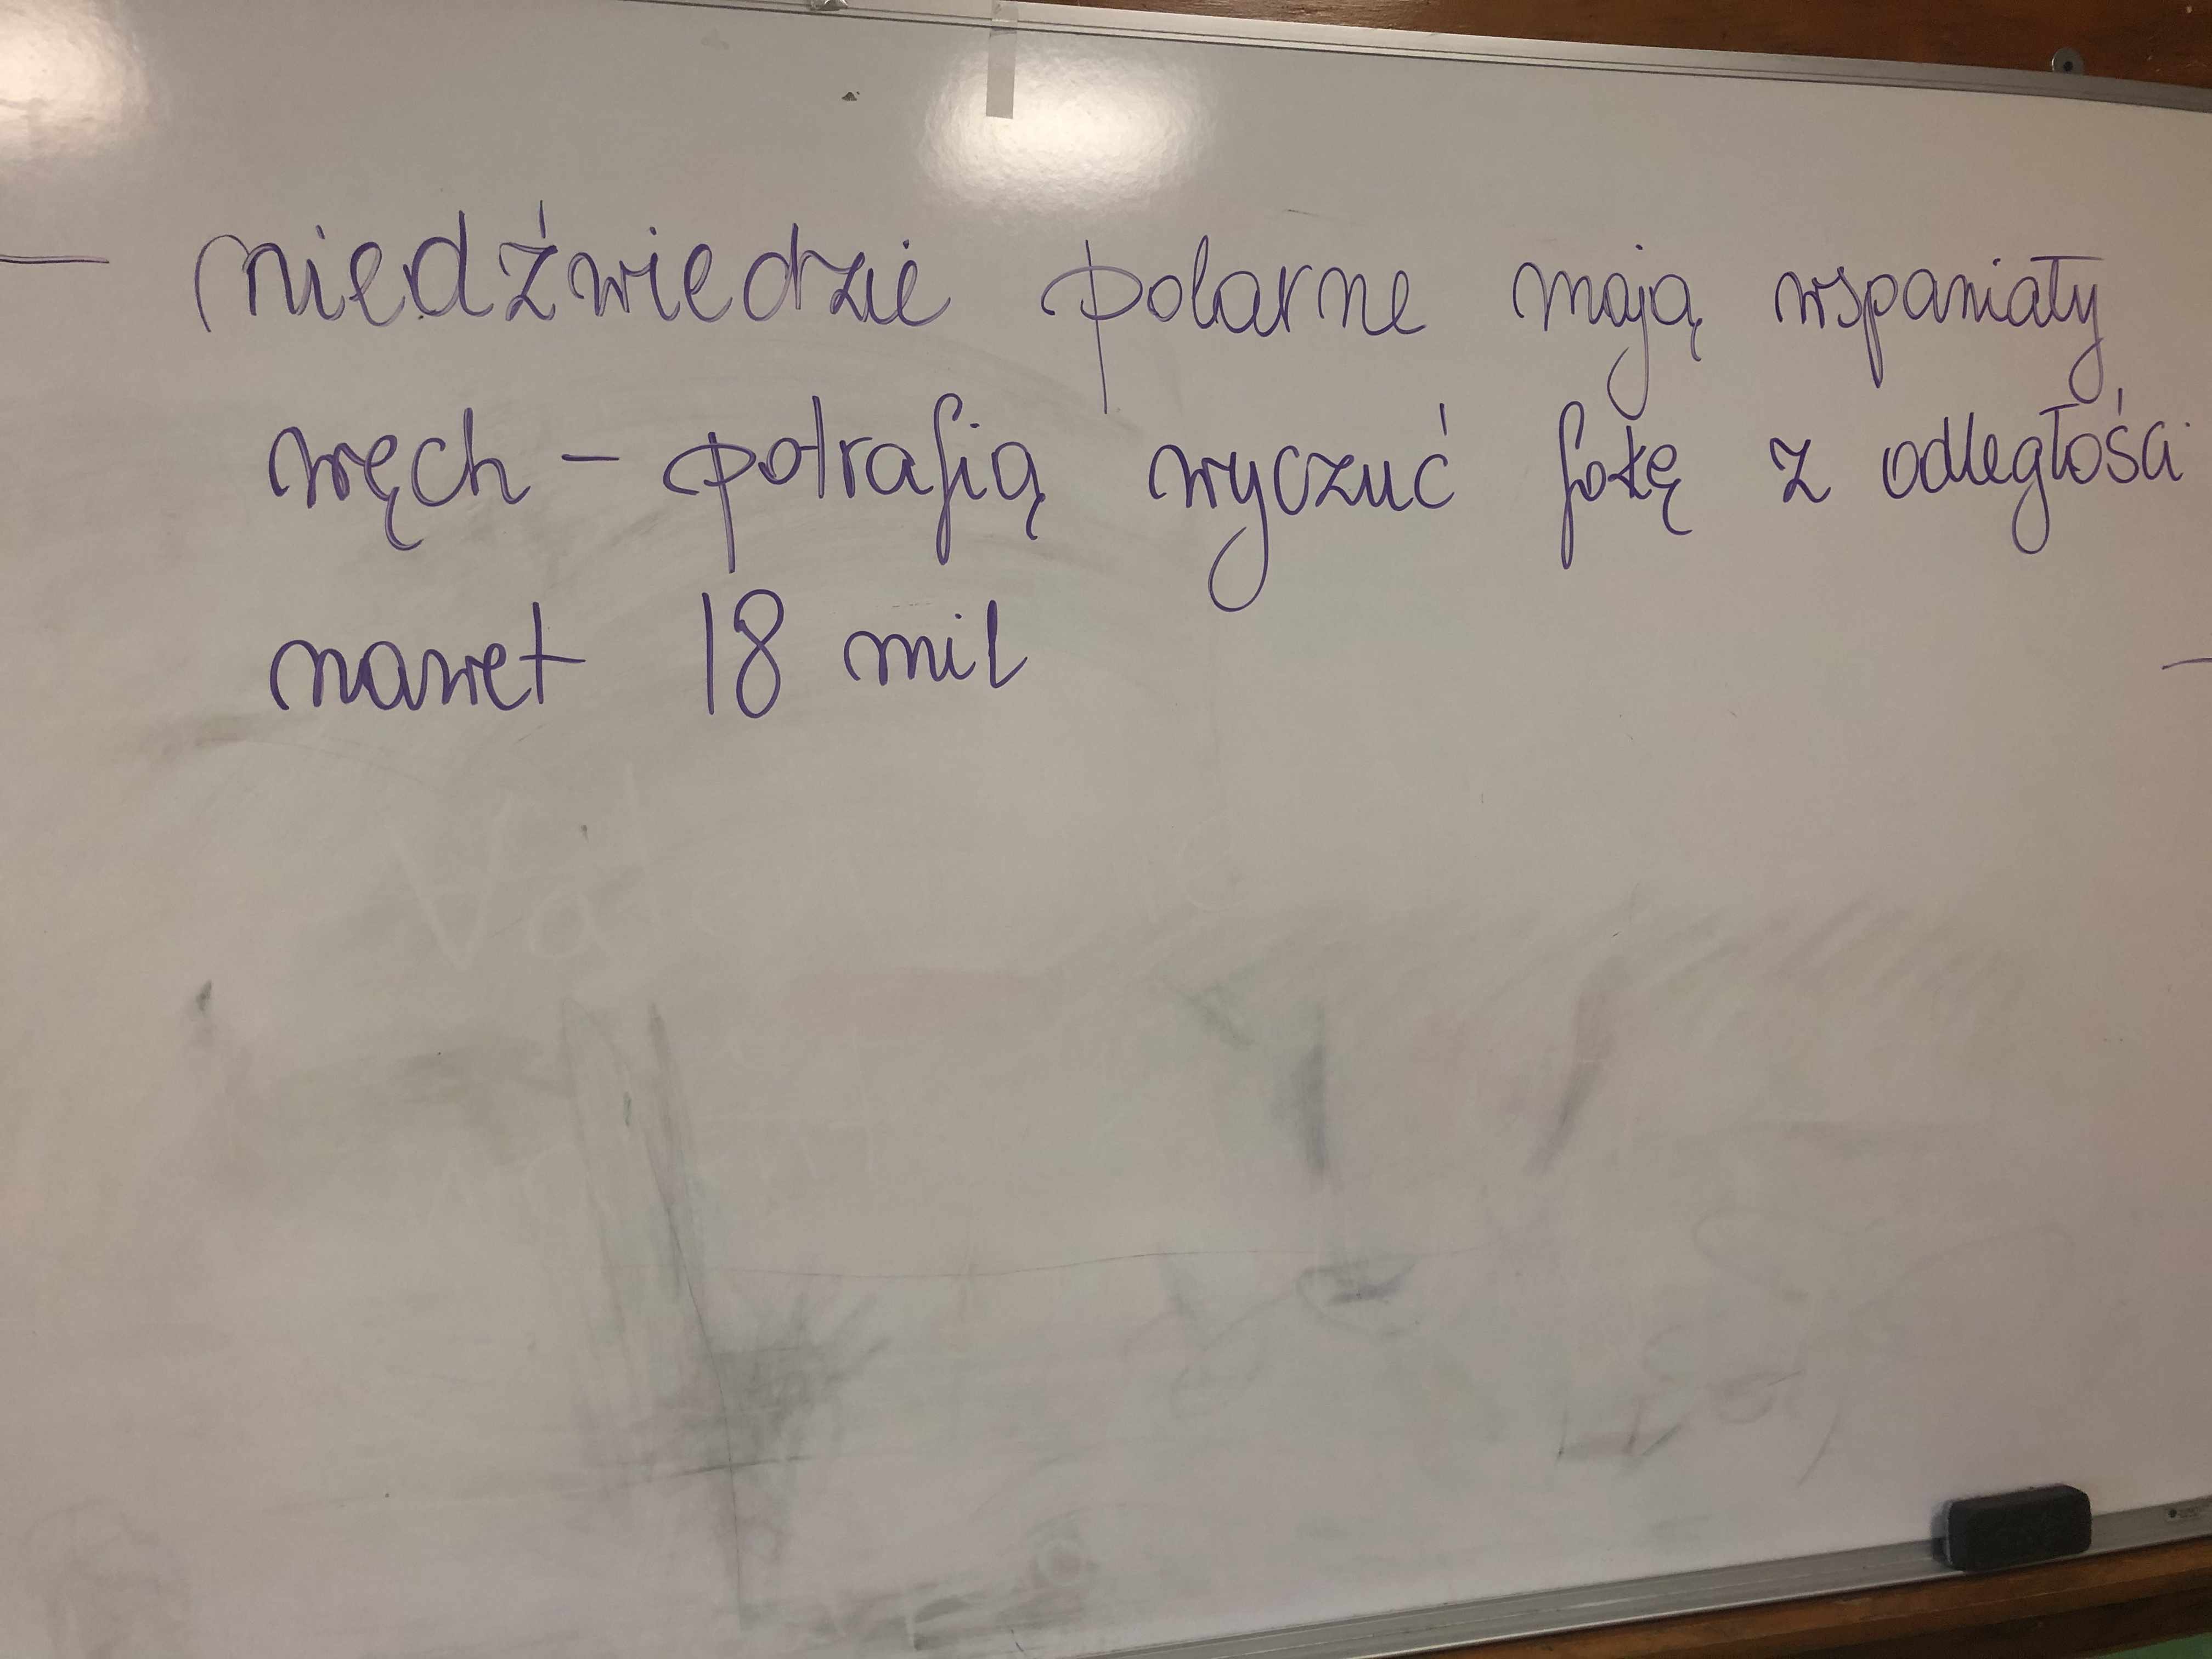 — niedźwiedzie polarne mają wspaniały
węch – potrafią wyczuć fokę z odległości
nawet 18 mil